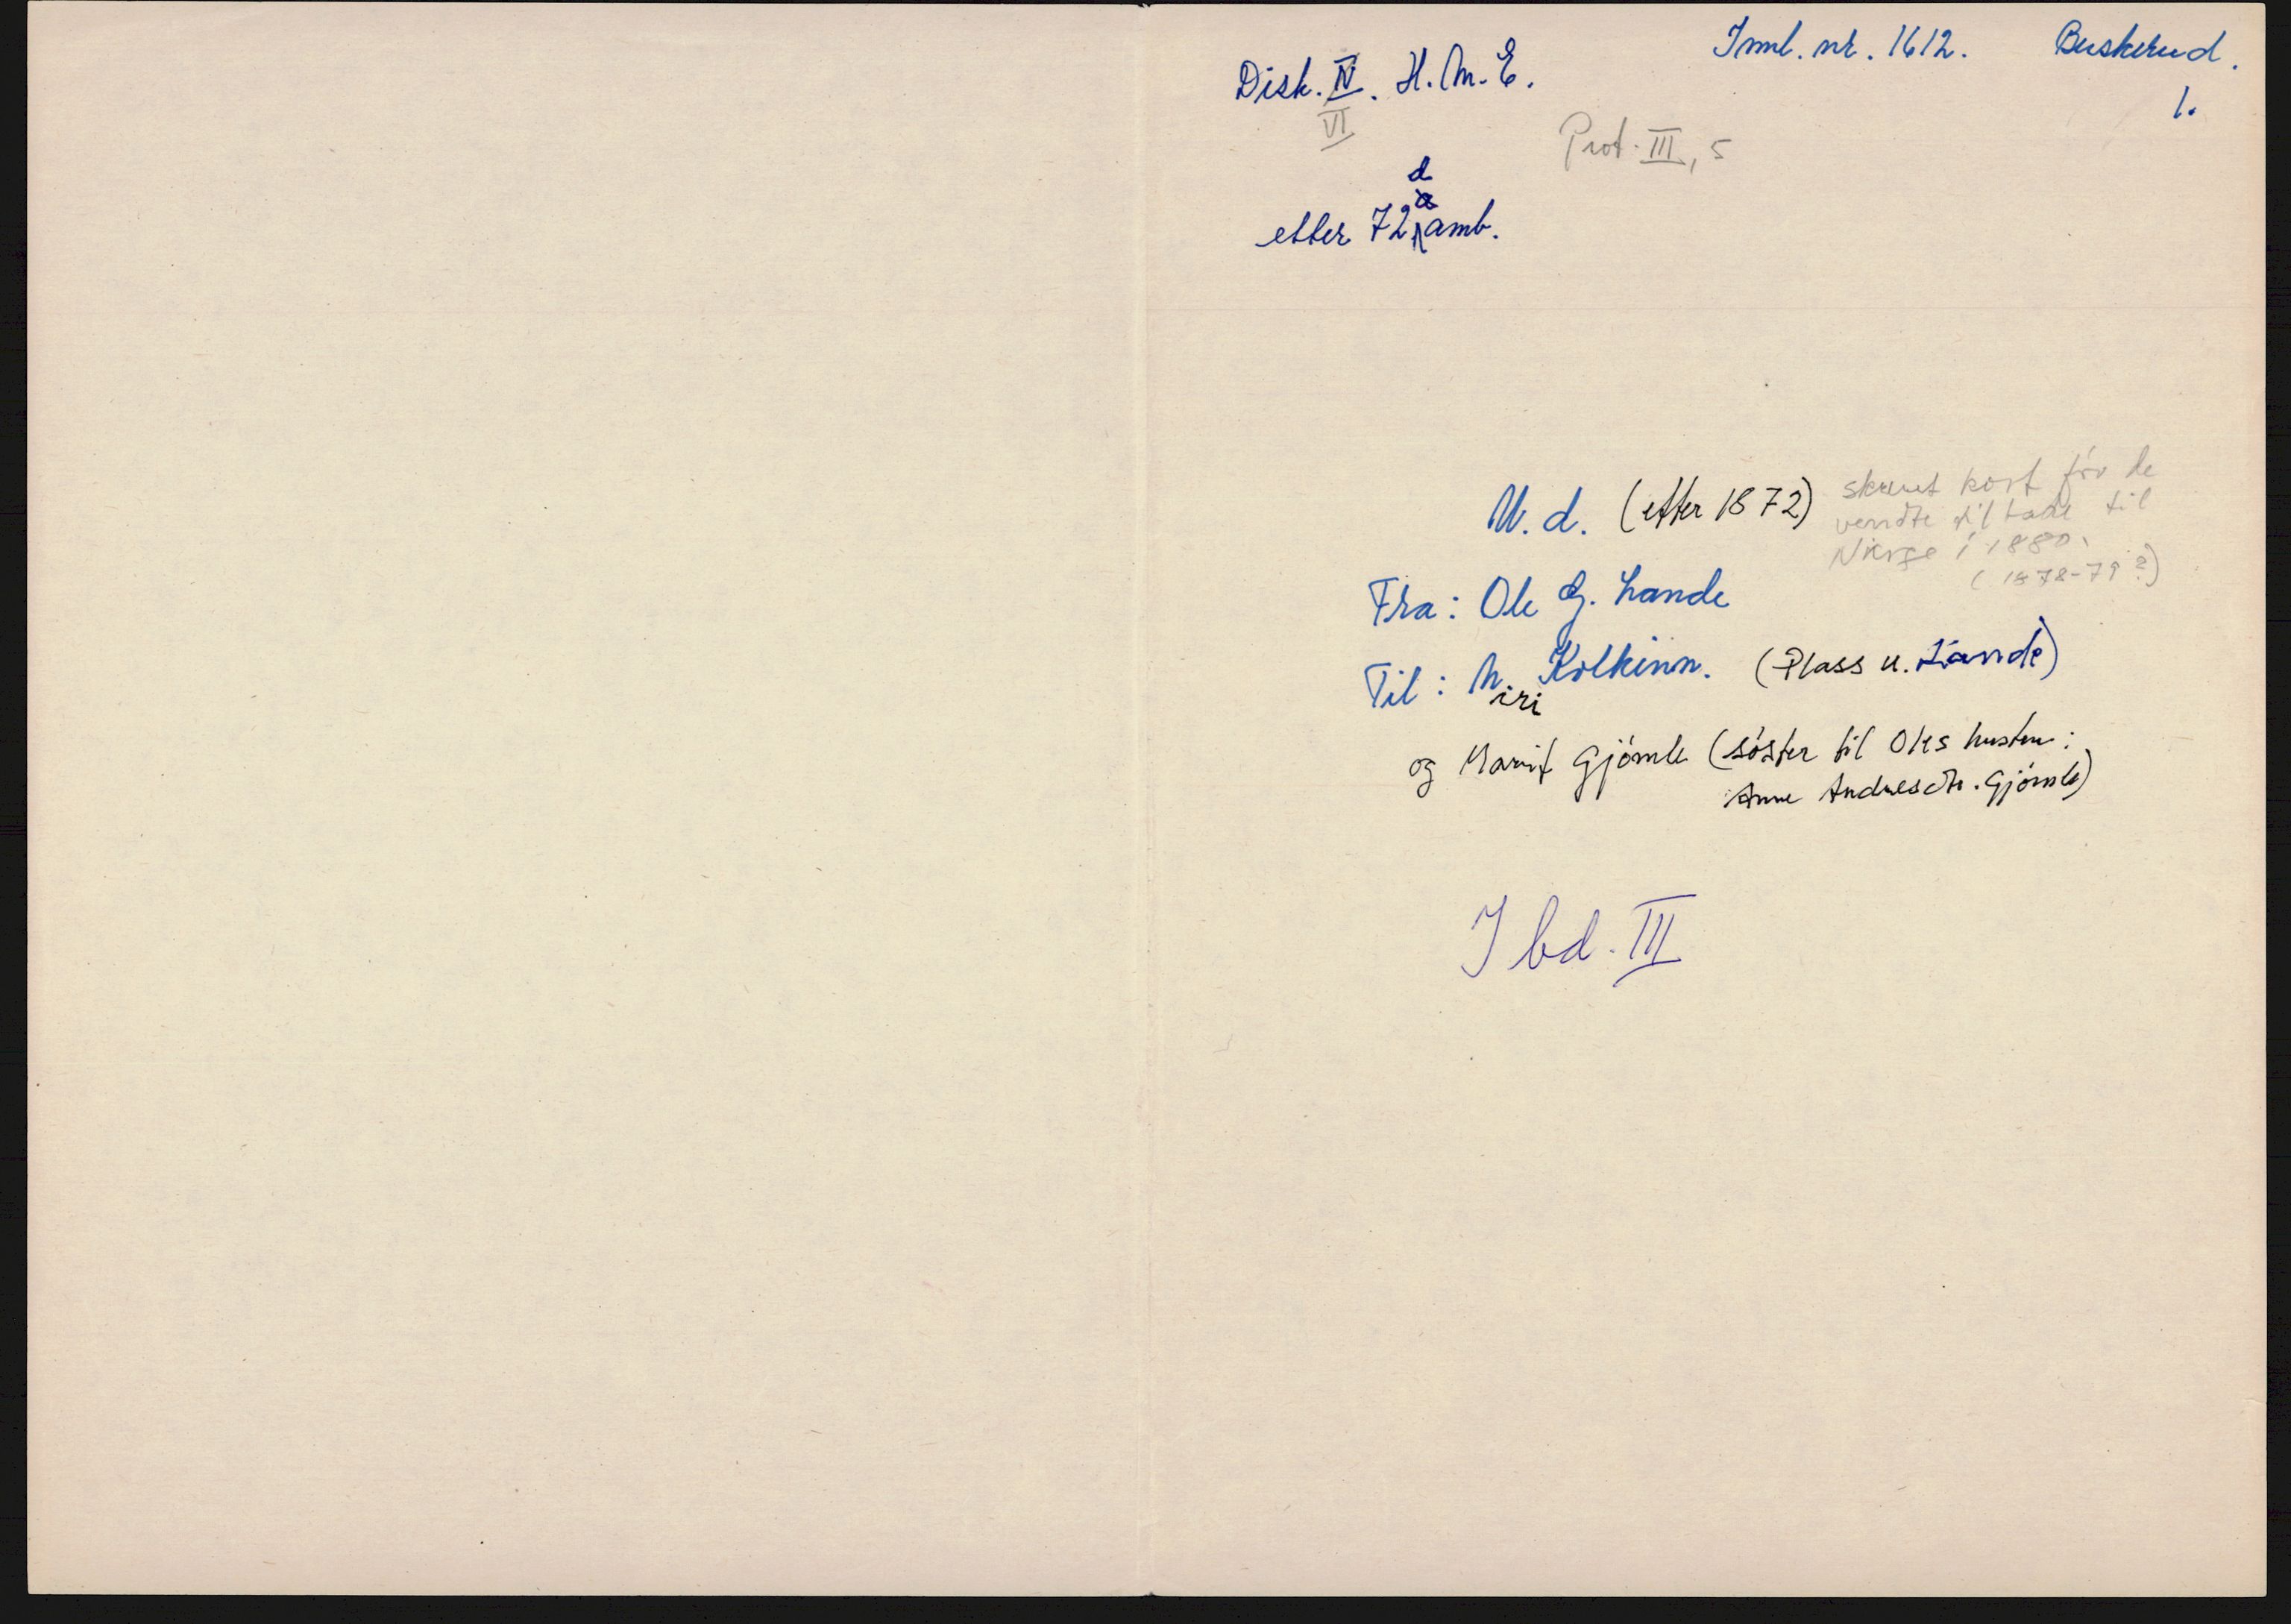 Innl. nr. 1612. Buskerud.
1.
Disk. IV. H.M.E.
VI
Prot. III, 5
d
a
etter 72 amb.
U. d. (etter 1872) skrevet kort før de
vendte tilbake til
Norge i 1880.
(1878-79?)
Fra: Ole G. Lande
Til: M. Kolkinn. (Plass u. Lande)
iri
og Marit Gjömle (söster til Oles hustru:
Anne Andresdtr. Gjömle)
I bd. III